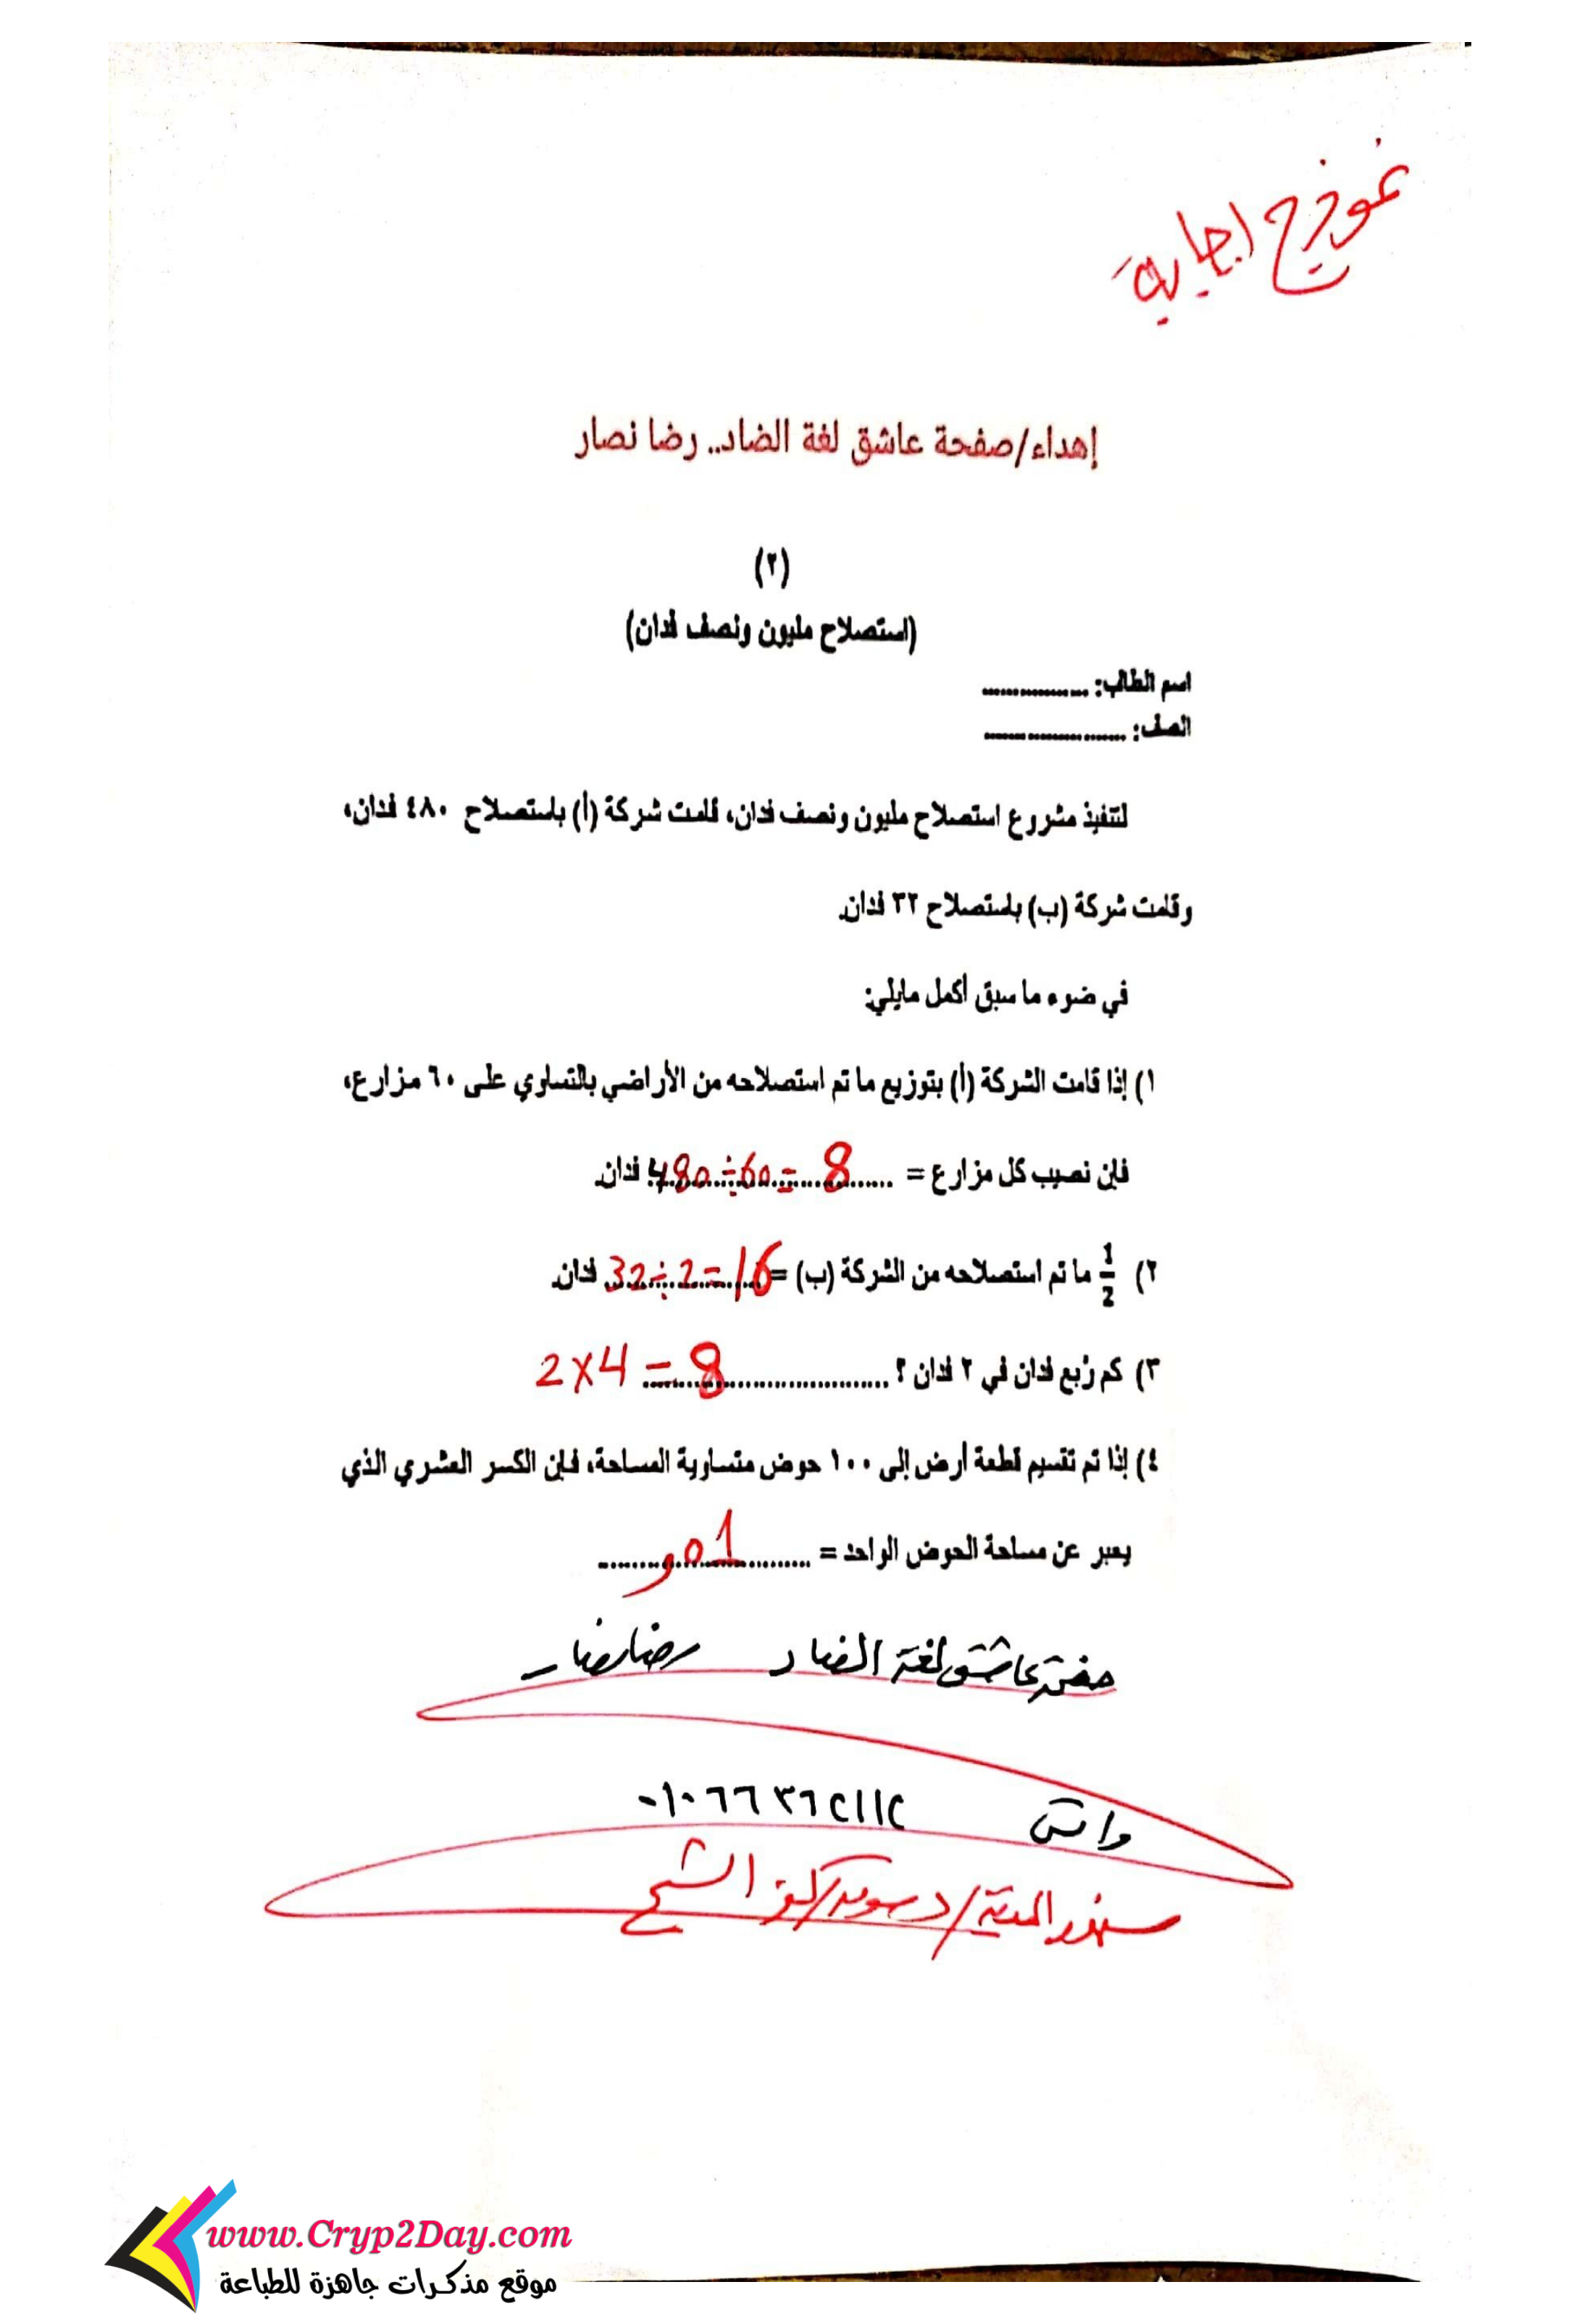 نموذج اجابة
إهداء/صفحة عاشق لغة الضاد.. رضا نصار
(٢)
(استصلاح مليون ونصف فدان)
اسم الطالب: ..................
الصف: ........................
لتنفيذ مشروع استصلاح مليون ونصف فدان، قامت شركة (أ) باستصلاح ٤٨٠ فدان،
وقامت شركة (ب) باستصلاح ٣٢ فدان.
في ضوء ما سبق أكمل مايلي:
١) إذا قامت الشركة (أ) بتوزيع ما تم استصلاحه من الأراضي بالتساوي على ٦٠ مزارع،
فإن نصيب كل مزارع = 480÷60=8 فدان.
٢) 1/2 ما تم استصلاحه من الشركة (ب) = 32÷2=16 فدان.
٣) كم رُبع فدان في ٢ فدان ؟ 2×4=8
٤) إذا تم تقسيم قطعة أرض إلى ١٠٠ حوض متساوية المساحة، فإن الكسر العشري الذي
يعبر عن مساحة الحوض الواحد = و01
صفحة عاشق لغة الضاد رضا نصار
واتس ٠١٠٦٦٣٦٢١١٢
سنهور المدينة/دسوق/كفر الشيخ
www.Cryp2Day.com
موقع مذكرات جاهزة للطباعة